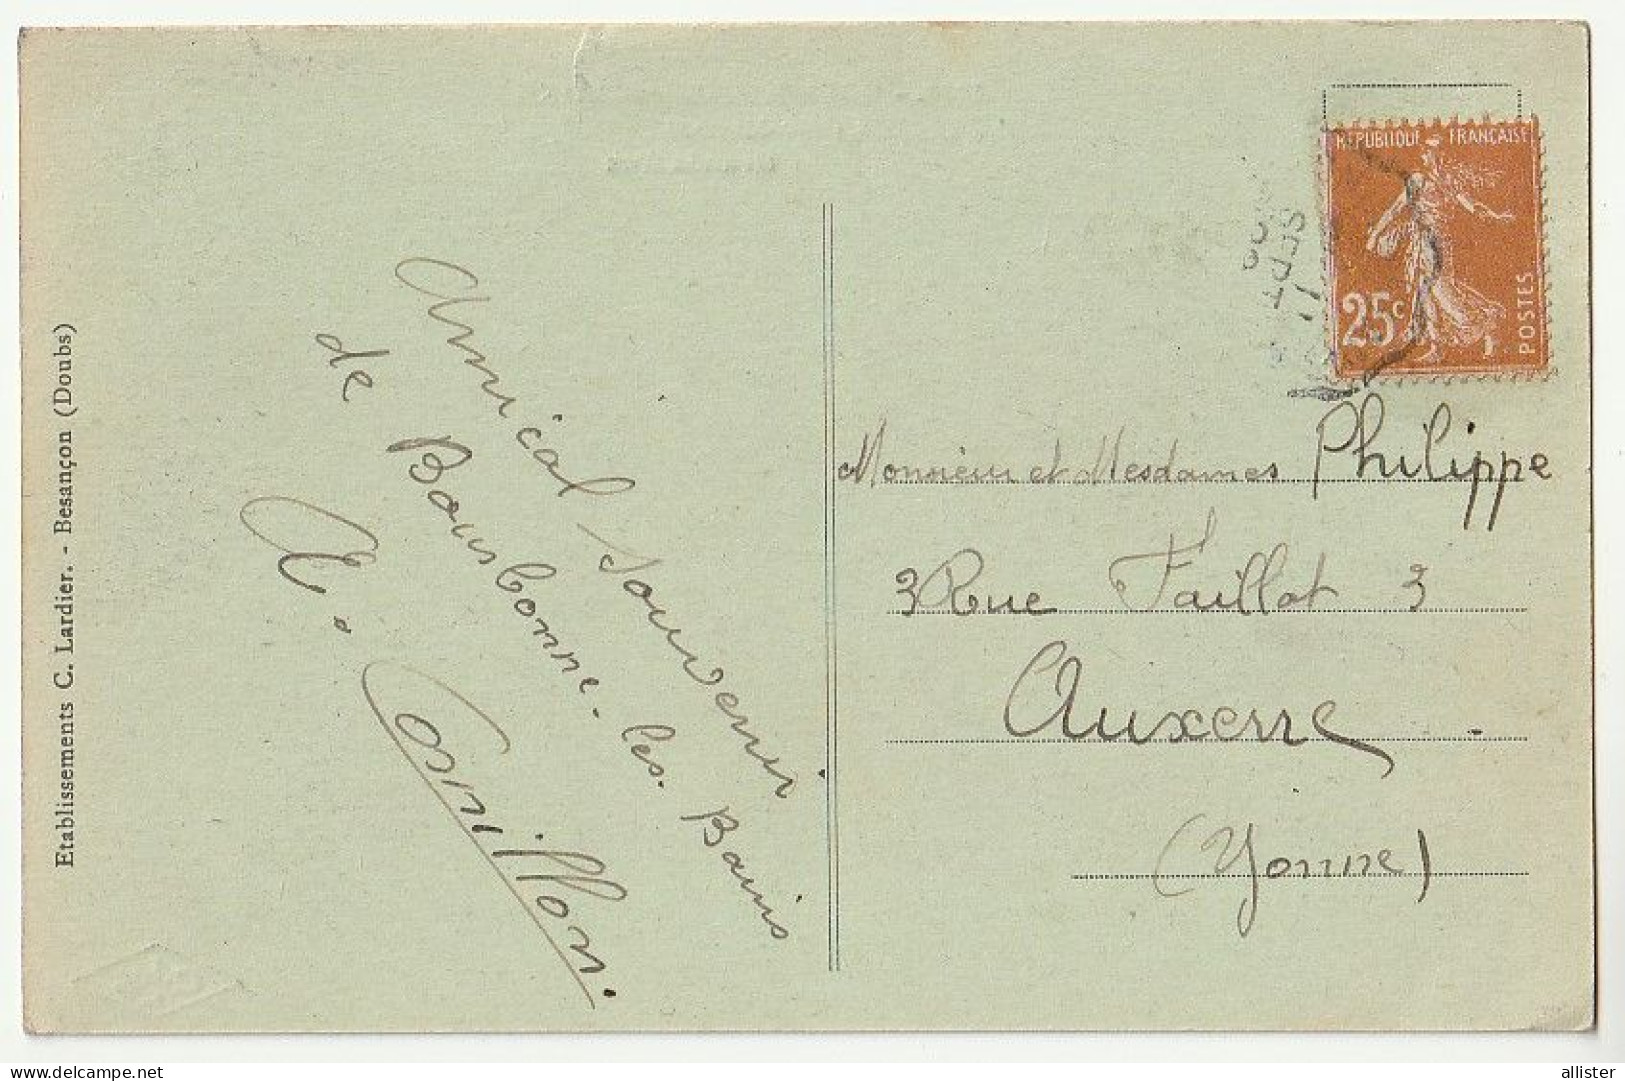 Etablissements C. Lardier. - Besançon (Doubs)
Amical souvenir
de Bourbonne-les-Bains
Cornillon
REPUBLIQUE FRANÇAISE
25c
POSTES
SEPT
Monsieur et Mesdames Philippe
3 Rue Faillot 3
Auxerre
(Yonne)
allister
delcampe.net